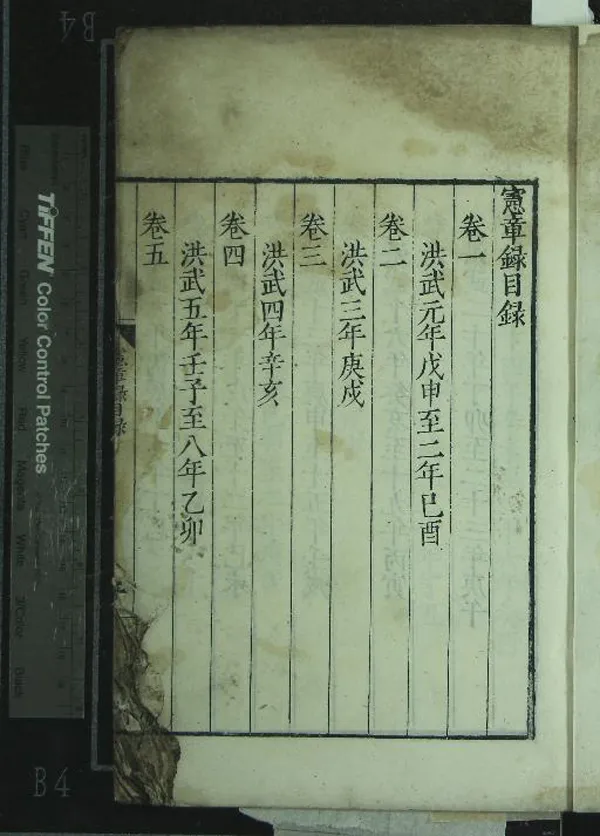 憲章録目録
卷一
洪武元年戊申至二年巳酉
卷二
洪武三年庚戌
卷三
洪武四年辛亥
卷四
洪武五年壬子至八年乙卯
卷五
憲章録目録
TIFFEN Color Control Patches
Blue
Cyan
Green
Yellow
Red
Magenta
White
3/Color
Black
B4
B4